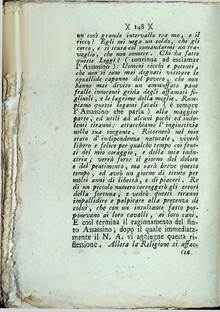 )( 148 )(
un così grande intervallo tra me, e il
ricco? Egli mi nega un soldo, che gli
cerco, e si scusa col comandarmi un tra-
vaglio, che non conosce. Chi ha fatte
queste Leggi? ( continua ad esclamar
l'Assassino ): Uomini ricchi e potenti,
che non si sono mai degnati visitare le
squallide capanne del povero, che non
hanno mai diviso un ammuffato pane
fralle innocenti grida degli affamati fi-
gliuoli, e le lagrime della moglie. Rom-
piamo questi legami fatali, è sempre
l'Assassino che parla, alla maggior
parte, ed utili ad alcuni pochi ed in-
dolenti tiranni; attacchiamo l'ingiustizia
nella sua sorgente. Ritornerò nel mio
stato d'indipendenza naturale, viverò
libero e felice per qualche tempo coi frut-
ti del mio coraggio, e della mia indu-
stria; verrà forse il giorno del dolore
e del pentimento, ma sarà breve questo
tempo, ed avrò un giorno di stento per
molti anni di libertà, e di piaceri. Re
di un piccolo numero correggerò gli errori
della fortuna, e vedrò questi tiranni
impallidire e palpitare alla presenza di
colui, che con un insultante fasto pos-
ponevano ai loro cavalli, ai loro cani.
E così termina il ragionamento del fin-
to Assassino; dopo il quale immediata-
mente il N. A. vi aggiugne questa ri-
flessione. Allora la Religione si affac-
cia